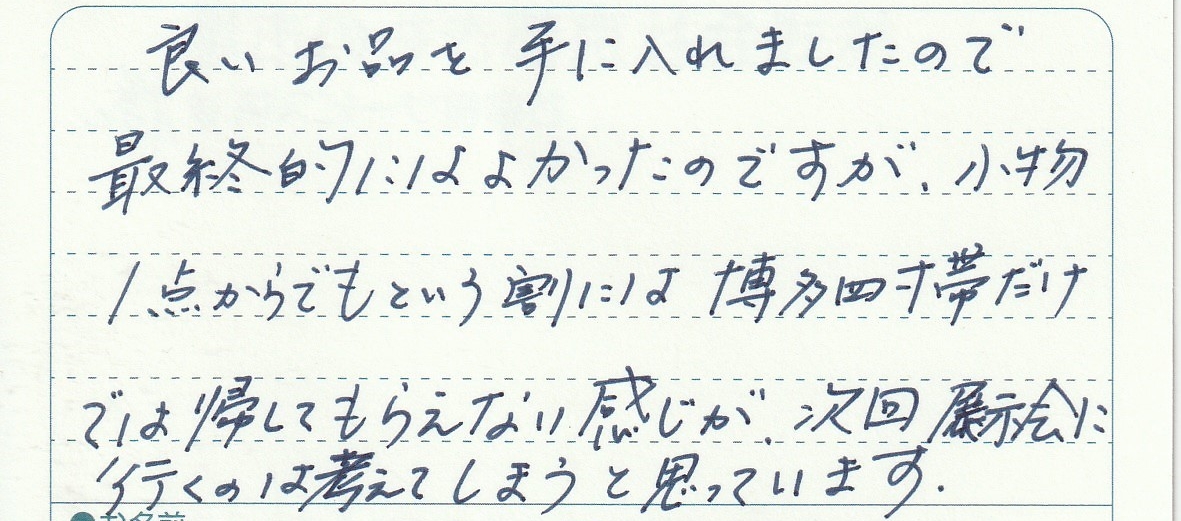 良いお品を手に入れましたので
最終的にはよかったのですが、小物
1点からでもという割には博多四寸帯だけ
では帰してもらえない感じが、次回展示会に
行くのは考えてしまうと思っています.
●お名前